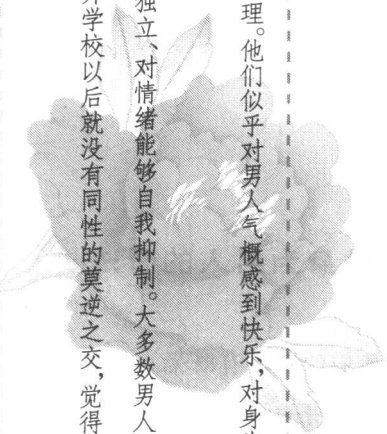 理。他们似乎对男人气概感到快乐，对身
独立、对情绪能够自我抑制。大多数男人
学校以后就没有同性的莫逆之交，觉得